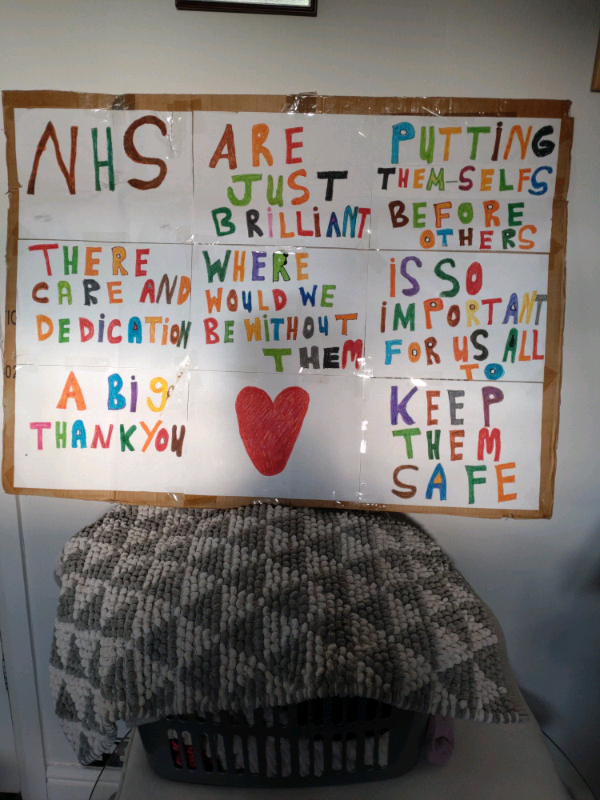 NHS
ARE
JUST
BRILLIANT
PUTTING
THEM-SELFS
BEFORE
OTHERS
THERE
CARE AND
DEDICATION
WHERE
WOULD WE
BE WITHOUT
THEM
iS SO
iMPORTANT
FOR US ALL
TO
A BiG
THANKYOU
KEEP
THEM
SAFE